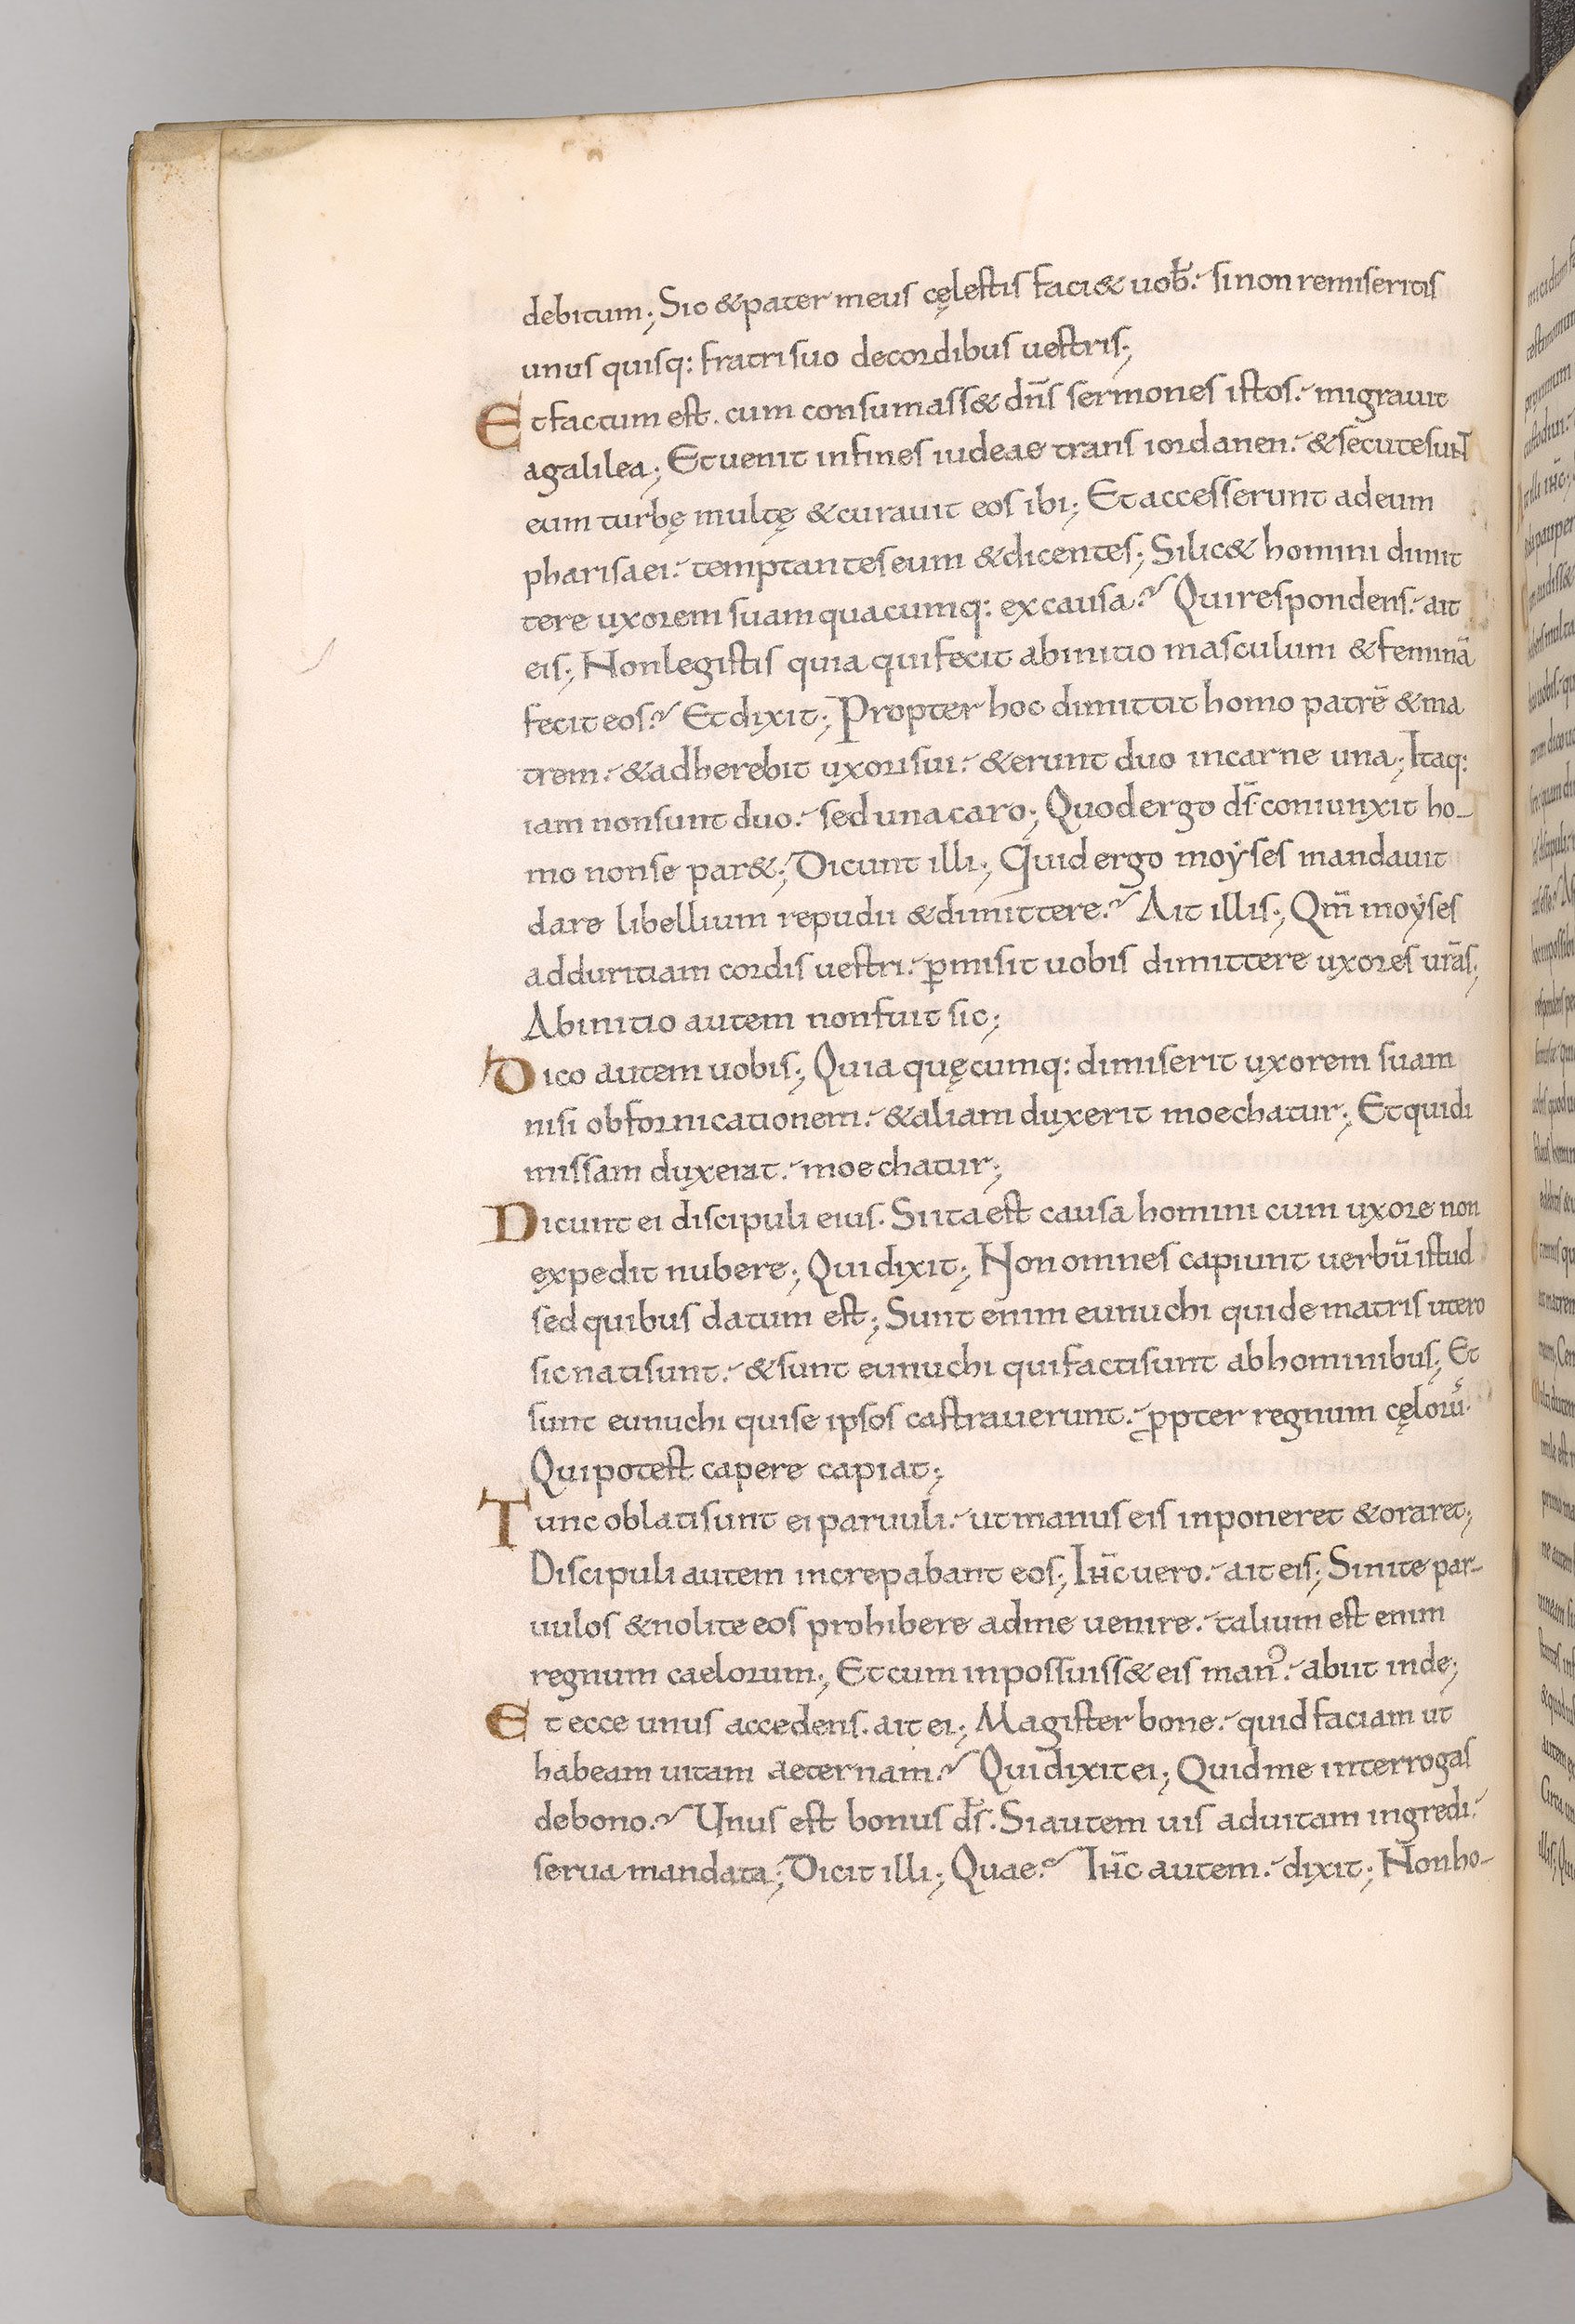 debitum; Sic & pater meus cęlestis faci& uob̄. si non remiseritis
unus quisq: fratri suo de cordibus uestris;
Et factum est. cum consumass& dn̄s sermones istos. migrauit
a galilea; Et uenit in fines iudeae trans iordanen. & secute sunt
eum turbę multę & curauit eos ibi; Et accesserunt ad eum
pharisaei. temptantes eum & dicentes; Si lic& homini dimit
tere uxorem suam quacumq: ex causa? Qui respondens. ait
eis; Non legistis quia qui fecit ab initio masculum & feminā
fecit eos? Et dixit; Propter hoc dimittit homo patrē & ma
trem. & adherebit uxori sui. & erunt duo in carne una; Itaq:
iam non sunt duo. sed una caro; Quod ergo ds̄ coniunxit ho-
mo non separ&; Dicunt illi; Quid ergo moẏses mandauit
dare libellium repudii & dimittere? Ait illis; Qm̄ moẏses
ad duritiam cordis uestri. ꝑmisit uobis dimittere uxores urās;
Ab initio autem non fuit sic;
Dico autem uobis; Quia quęcumq: dimiserit uxorem suam
nisi ob fornicationem. & aliam duxerit moechatur; Et qui di
missam duxerit. moechatur;
Dicunt ei discipuli eius. Si ita est causa homini cum uxore non
expedit nubere; Qui dixit; Non omnes capiunt uerbū istud
sed quibus datum est; Sunt enim eunuchi qui de matris utero
sic nati sunt. & sunt eunuchi qui facti sunt ab hominibus; Et
sunt eunuchi qui se ipsos castrauerunt. ꝓpter regnum cęlorū.
Qui potest capere capiat;
Tunc oblati sunt ei paruuli. ut manus eis inponeret & oraret;
Discipuli autem increpabant eos; Ihc̄ uero. ait eis; Sinite par-
uulos & nolite eos prohibere ad me uenire. talium est enim
regnum caelorum; Et cum inpossuiss& eis manꝰ. abiit inde;
Et ecce unus accedens. ait ei; Magister bone. quid faciam ut
habeam uitam aeternam? Qui dixit ei; Quid me interrogas
de bono? Unus est bonus ds̄. Si autem uis ad uitam ingredi.
serua mandata; Dicit illi; Quae? Ihc̄ autem. dixit; Non ho-